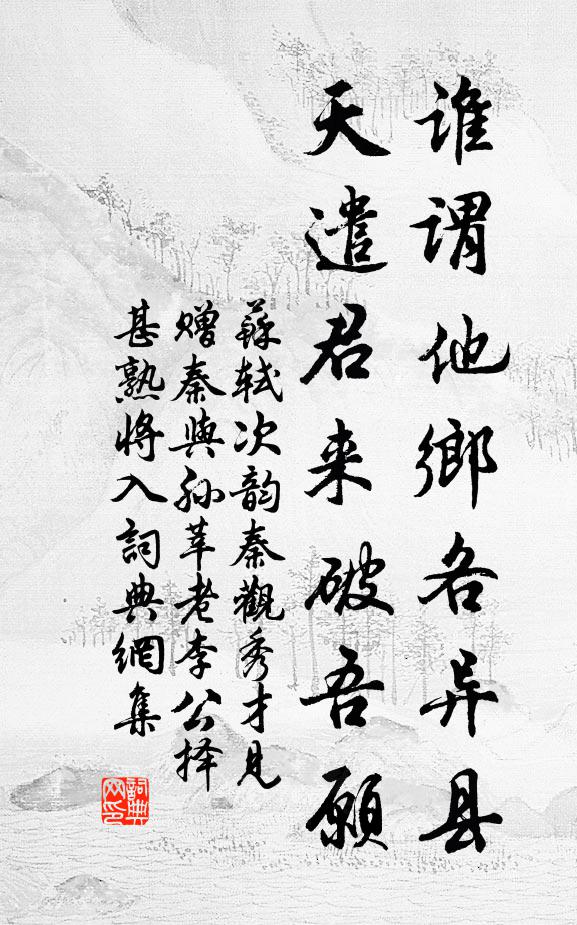 谁谓他鄉各异县
天遣君来破吾願
蘇轼次韵秦觀秀才見
赠秦與孙莘老李公择
甚熟将入詞典網集
詞典
网印